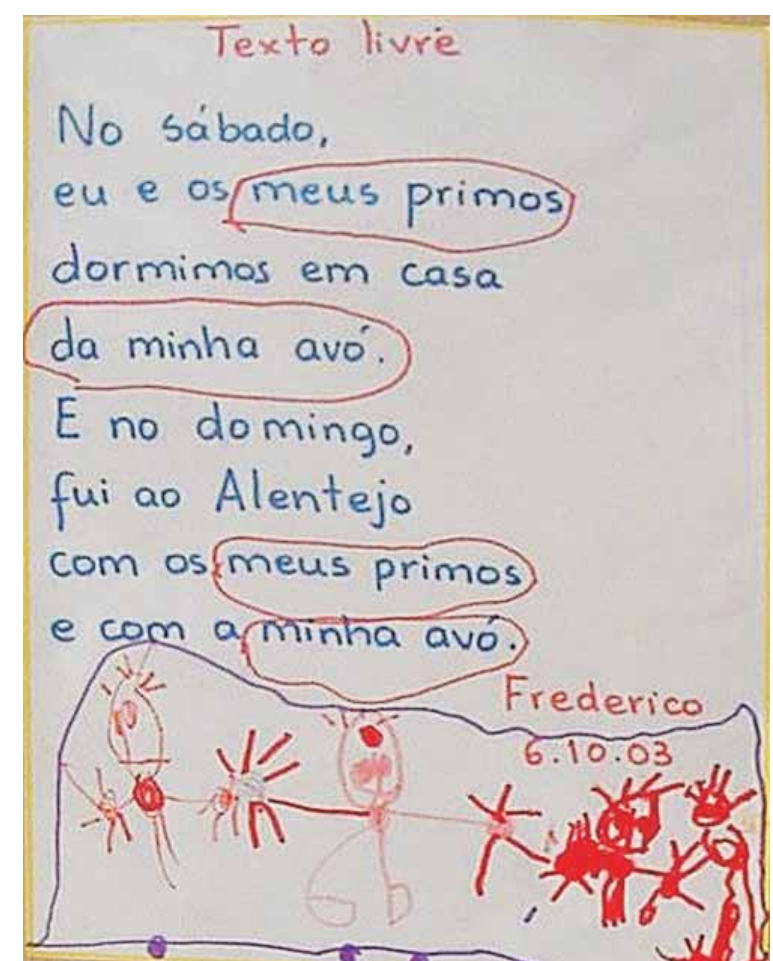 Texto livre
No sábado,
eu e os meus primos
dormimos em casa
da minha avó.
E no domingo,
fui ao Alentejo
com os meus primos
e com a minha avó.
Frederico
6.10.03